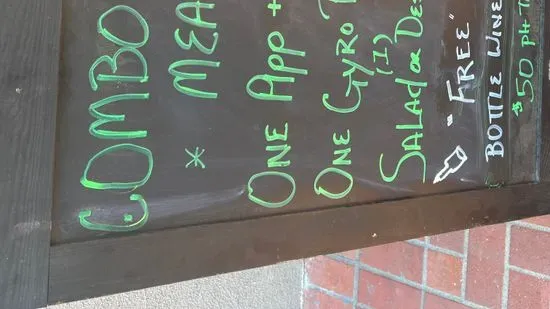 COMBO
* MEA
ONE APP +
ONE GYRO
(1)
SALAD OR DES
"FREE"
BOTTLE WINE
$50 PH